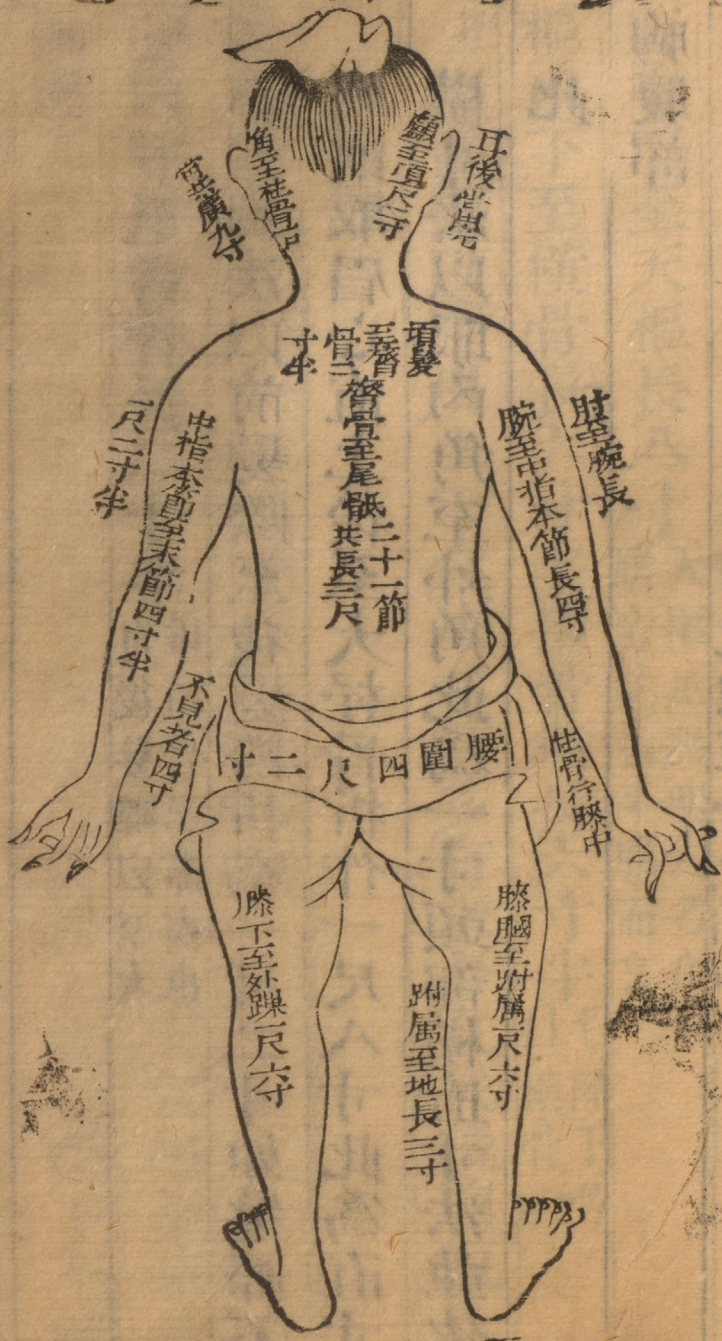 耳後當
完骨
顱至項尺二寸
角至柱骨一尺
者其廣九寸
項髮
至膂
骨二
寸半
膂骨至尾骶
二十一節
共長三尺
肘至腕長
一尺二寸半
腕至中指本節長四寸
中指本節至末節四寸半
柱骨行腋中
不見者四寸
腰圍四尺二寸
膝膕至跗屬一尺六寸
跗属至地長三寸
膝下至外踝一尺六寸